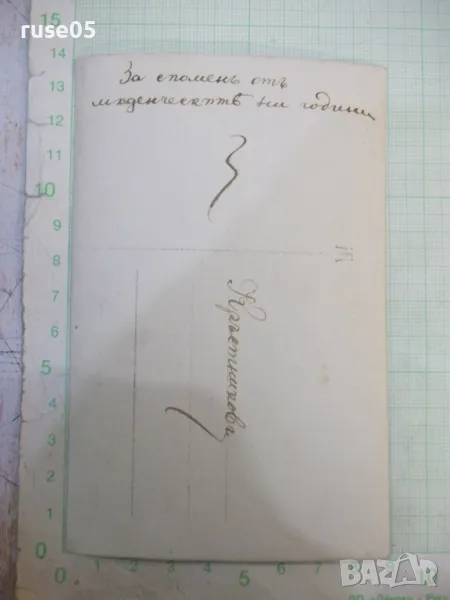 ruse05
За споменъ отъ
младенческитѣ ни години
Кръстникова
BAZAR
bg
15
14
13
12
11
10
9
8
7
6
5
4
3
2
1
0
1
2
3
4
5
6
7